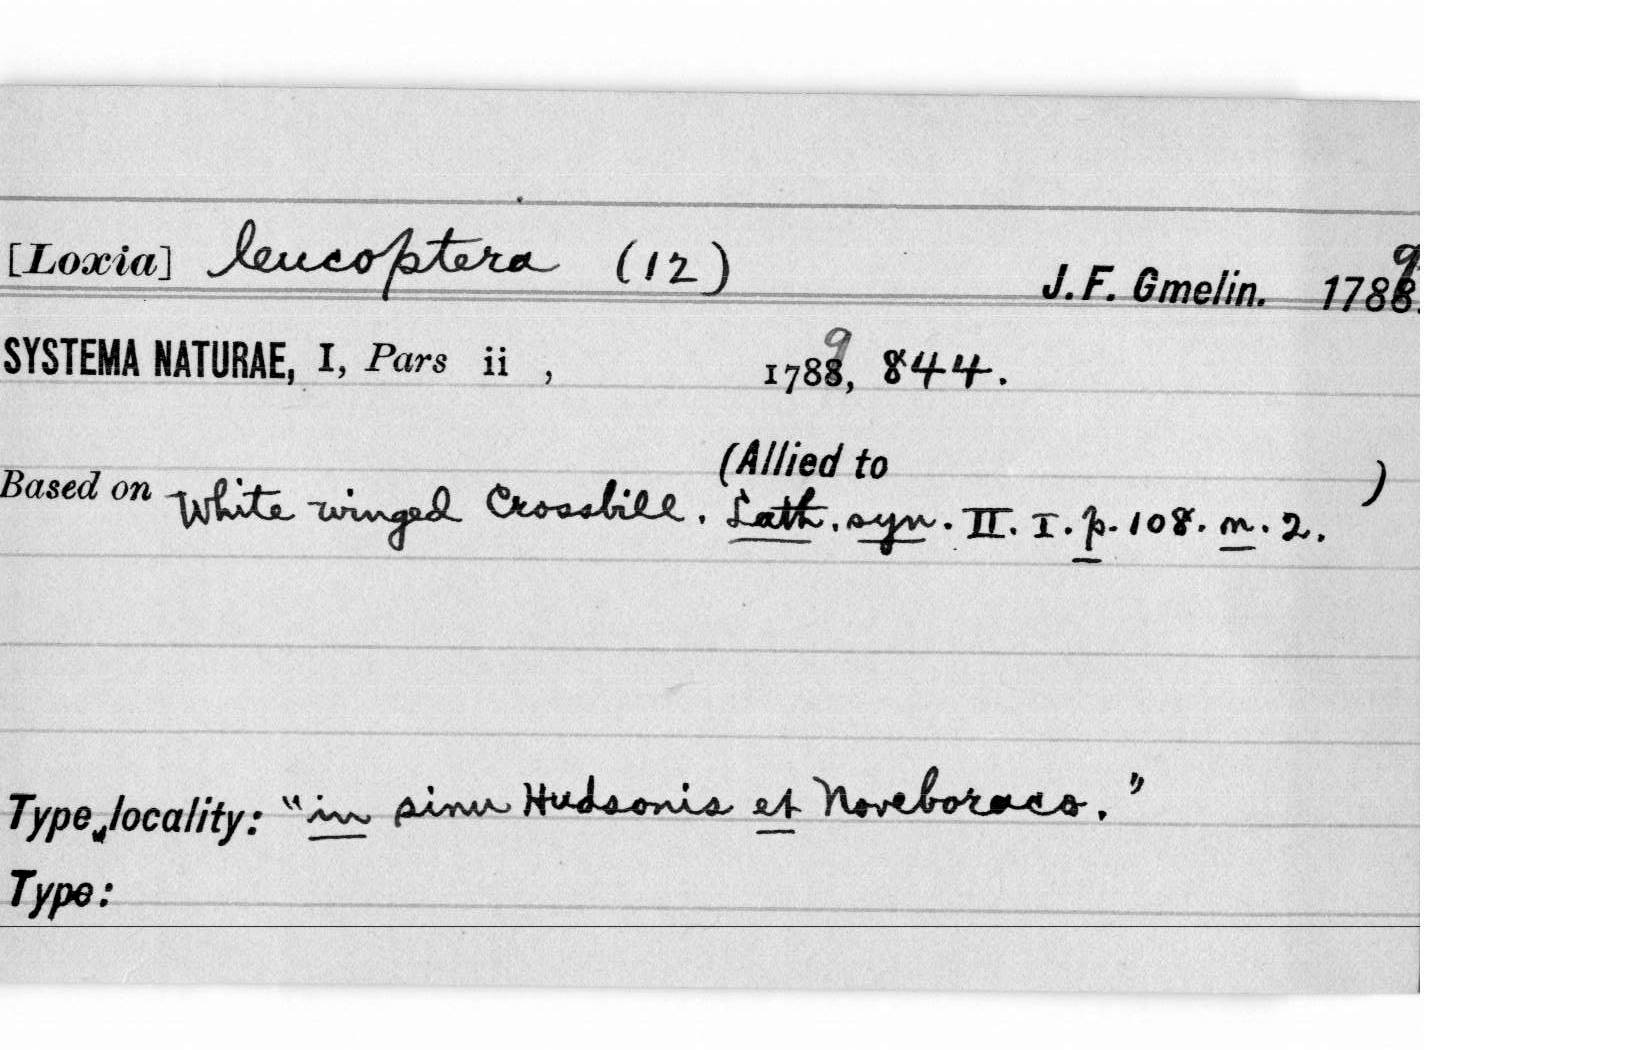 [Loxia] leucoptera (12) J. F. Gmelin. 1789.
SYSTEMA NATURAE, I, Pars ii , 1789, 844.
(Allied to )
Based on White winged Crossbill. Lath. syn. II. I. p. 108. n. 2.
Type locality: "in sinu Hudsonis et Noveboraco."
Type: